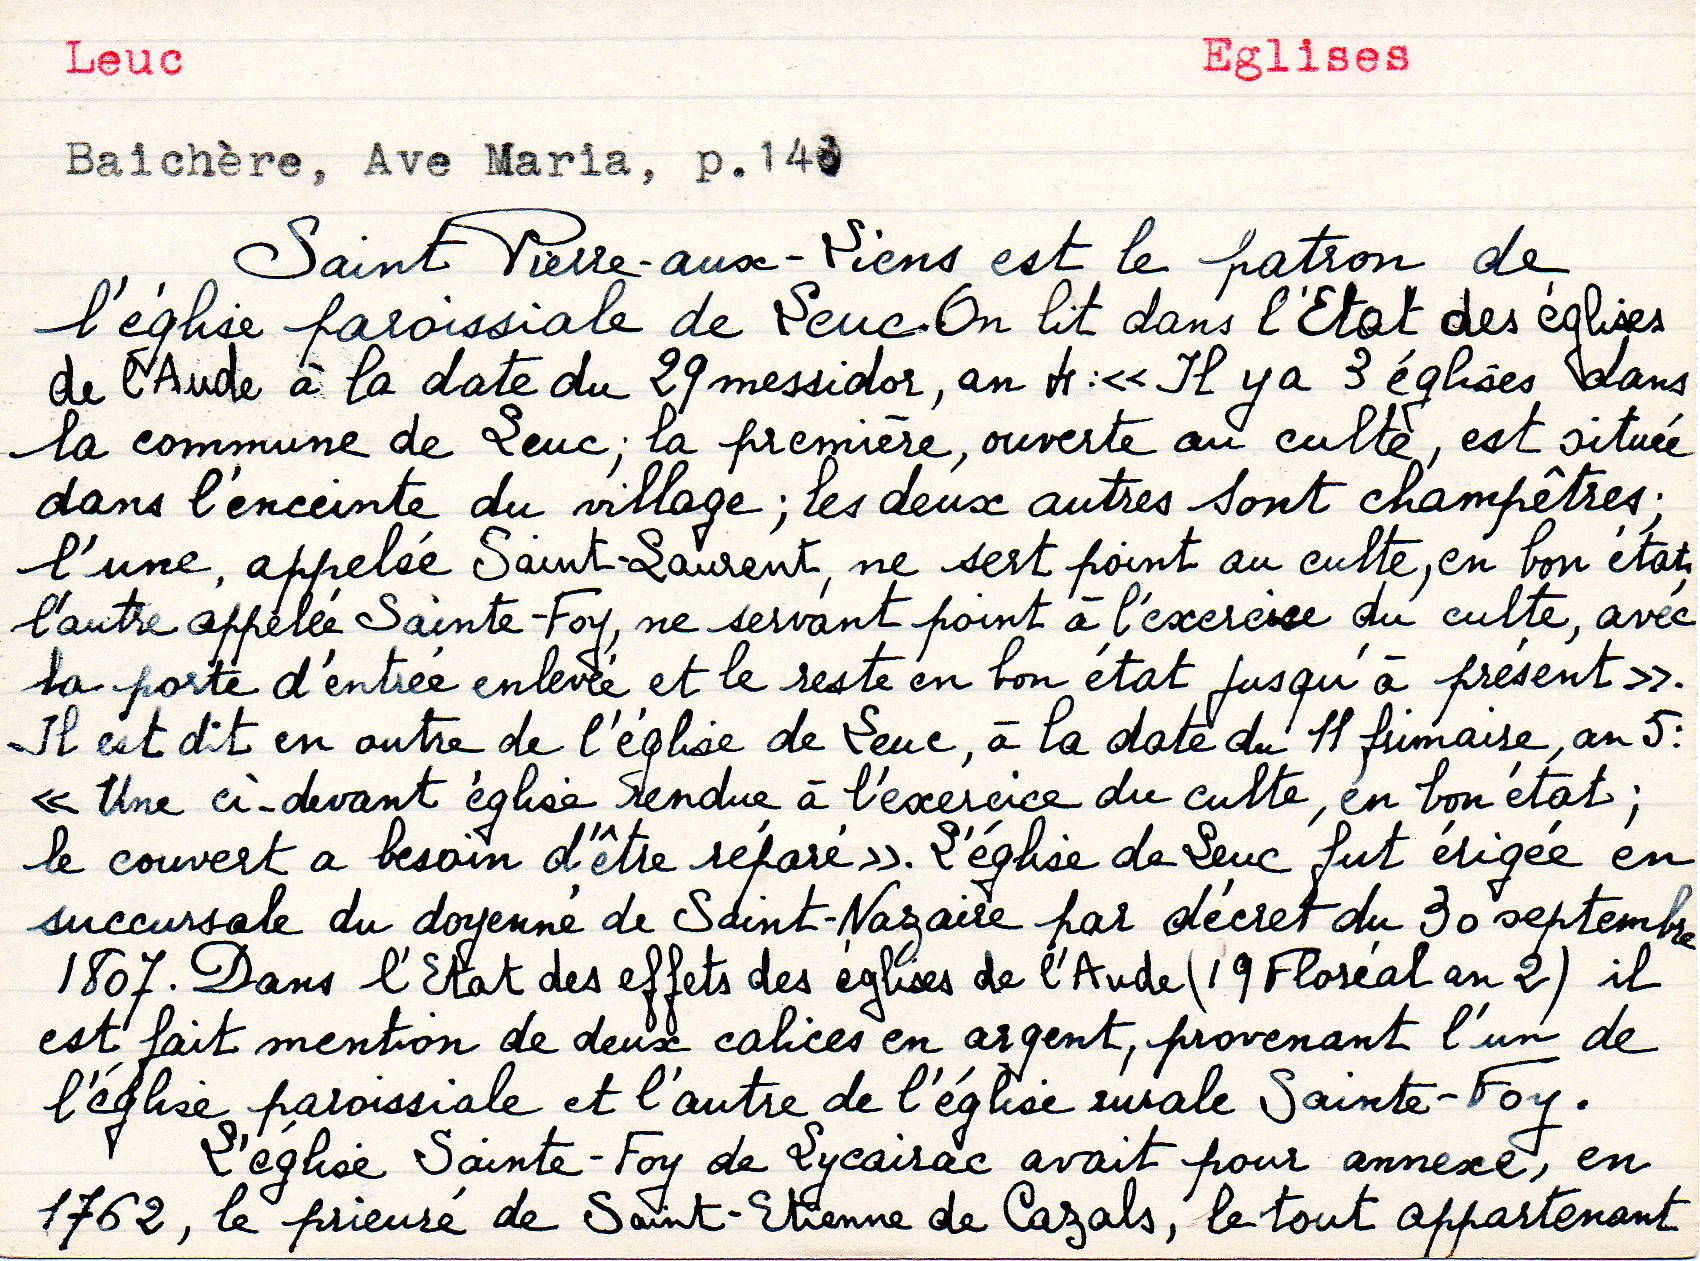 Leuc Eglises
Baichère, Ave Maria, p.14
Saint Pierre-aux-Liens est le patron de
l'église paroissiale de Leuc. On lit dans l'Etat des églises
de l'Aude à la date du 29 messidor, an 4 : « Il y a 3 églises dans
la commune de Leuc ; la première, ouverte au culte, est située
dans l'enceinte du village ; les deux autres sont champêtres ;
l'une, appelée Saint-Laurent, ne sert point au culte, en bon état,
l'autre appelée Sainte-Foy, ne servant point à l'exercice du culte, avec
la porte d'entrée enlevée et le reste en bon état jusqu'à présent ».
Il est dit en outre de l'église de Leuc, à la date du 11 frimaire, an 5 :
« Une ci-devant église rendue à l'exercice du culte, en bon état ;
le couvert a besoin d'être réparé ». L'église de Leuc fut érigée en
succursale du doyenné de Saint-Nazaire par décret du 30 septembre
1807. Dans l'Etat des effets des églises de l'Aude (19 Floréal an 2) il
est fait mention de deux calices en argent, provenant l'un de
l'église paroissiale et l'autre de l'église rurale Sainte-Foy.
L'église Sainte-Foy de Lycairac avait pour annexe, en
1762, le prieuré de Saint-Etienne de Cazals, le tout appartenant